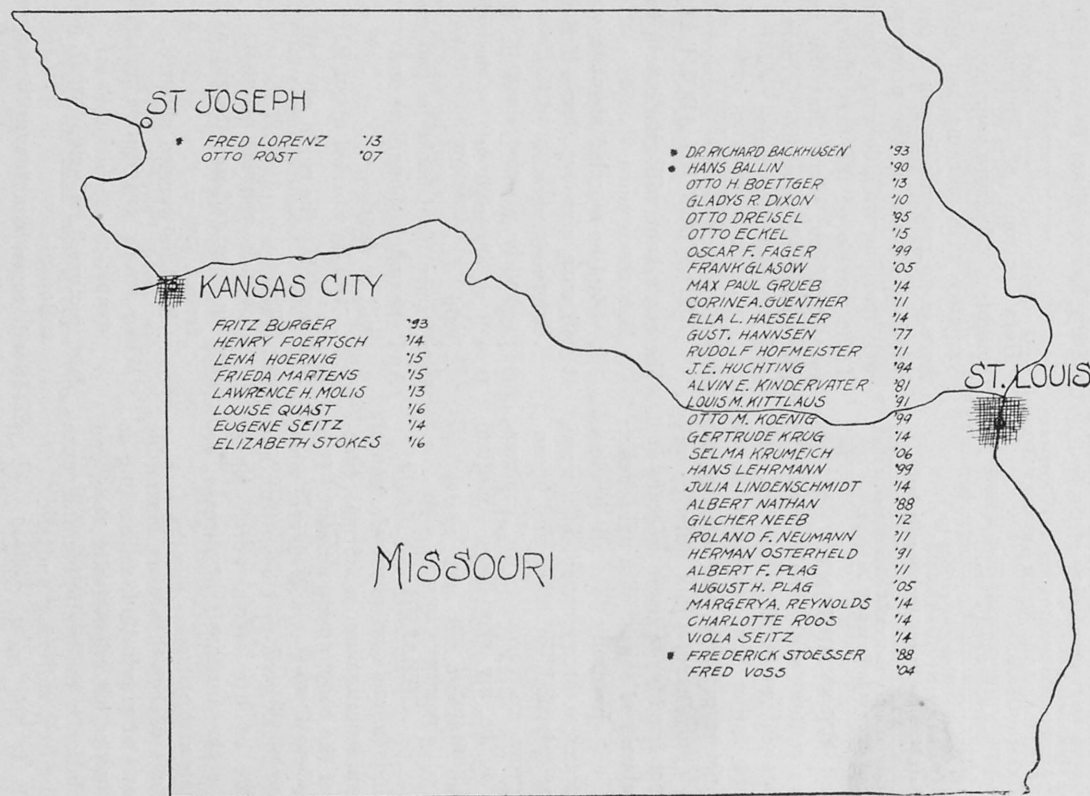 ST JOSEPH
• FRED LORENZ '13
OTTO ROST '07
KANSAS CITY
FRITZ BURGER '93
HENRY FOERTSCH '14
LENA HOERNIG '15
FRIEDA MARTENS '15
LAWRENCE H. MOLIS '13
LOUISE QUAST '16
EUGENE SEITZ '14
ELIZABETH STOKES '16
MISSOURI
• DR RICHARD BACKHUSEN '93
• HANS BALLIN '90
OTTO H. BOETTGER '13
GLADYS R. DIXON '10
OTTO DREISEL '95
OTTO ECKEL '15
OSCAR F. FAGER '99
FRANK GLASOW '05
MAX PAUL GRUEB '14
CORINE A. GUENTHER '11
ELLA L. HAESELER '14
GUST. HANNSEN '77
RUDOLF HOFMEISTER '11
J.E. HUCHTING '94
ALVIN E. KINDERVATER '81
LOUIS M. KITTLAUS '91
OTTO M. KOENIG '99
GERTRUDE KRUG '14
SELMA KRUMEICH '06
HANS LEHRMANN '99
JULIA LINDENSCHMIDT '14
ALBERT NATHAN '88
GILCHER NEEB '12
ROLAND F. NEUMANN '11
HERMAN OSTERHELD '91
ALBERT F. PLAG '11
AUGUST H. PLAG '05
MARGERY A. REYNOLDS '14
CHARLOTTE ROOS '14
VIOLA SEITZ '14
• FREDERICK STOESSER '88
FRED VOSS '04
ST. LOUIS